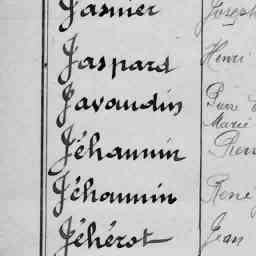 Jasnier Joseph
Jaspard Henri
Javaudin Pierre
Marie
Jéhannin Pierre
Jéhannin René
Jéhérot Jean